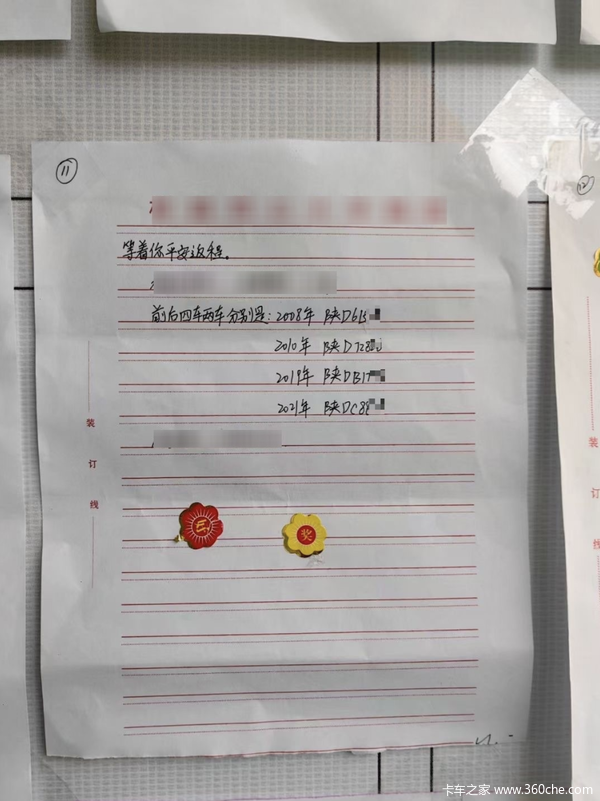 11
等着你平安返程。
前后四车两车分别是:2008年 陕D61S
2010年 陕D728
2019年 陕DB17
2021年 陕DC88
装
订
线
三
奖
12
装
订
线
卡车之家 www.360che.com